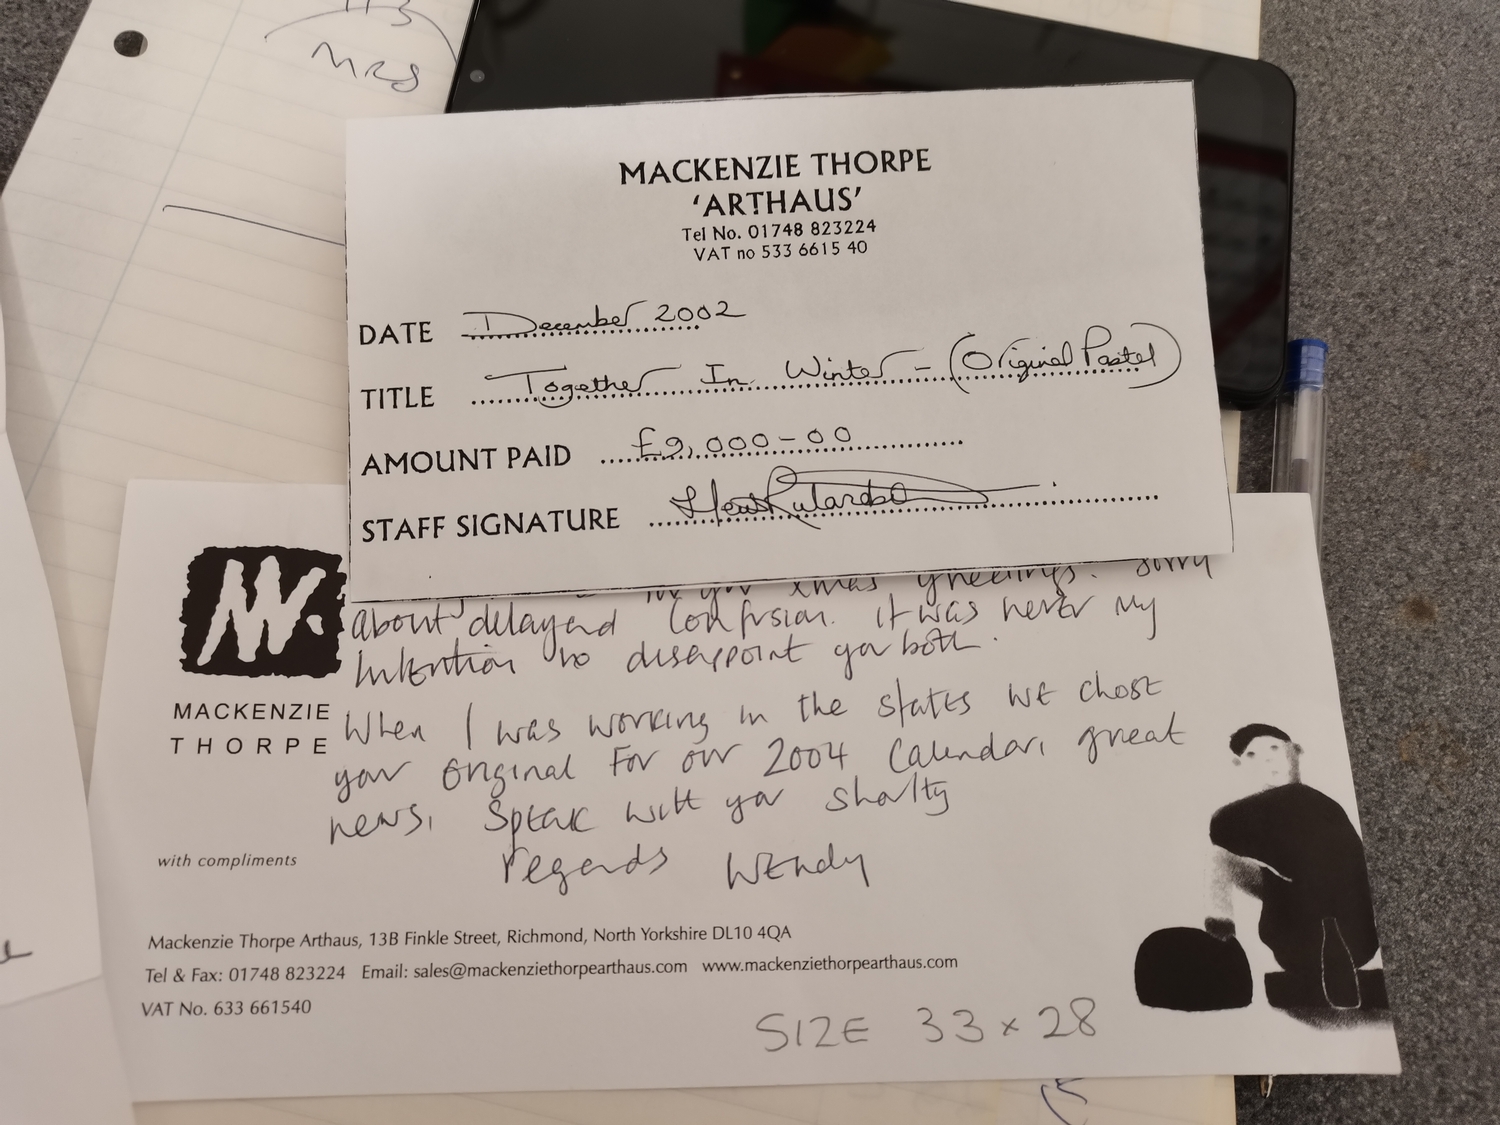 MRS
MACKENZIE THORPE
'ARTHAUS'
Tel No. 01748 823224
VAT no 533 6615 40
DATE December 2002
TITLE Together In Winter - (Original Pastel)
AMOUNT PAID £9,000-00
STAFF SIGNATURE
xmas greetings. Sorry
about delayed confusion. It was never my
intention to disappoint you both.
When I was working in the states we chose
your original for our 2004 Calendar, great
news, Speak with you shortly
regards Wendy
MACKENZIE
THORPE
with compliments
Mackenzie Thorpe Arthaus, 13B Finkle Street, Richmond, North Yorkshire DL10 4QA
Tel & Fax: 01748 823224 Email: sales@mackenziethorpearthaus.com www.mackenziethorpearthaus.com
VAT No. 633 661540
SIZE 33 x 28